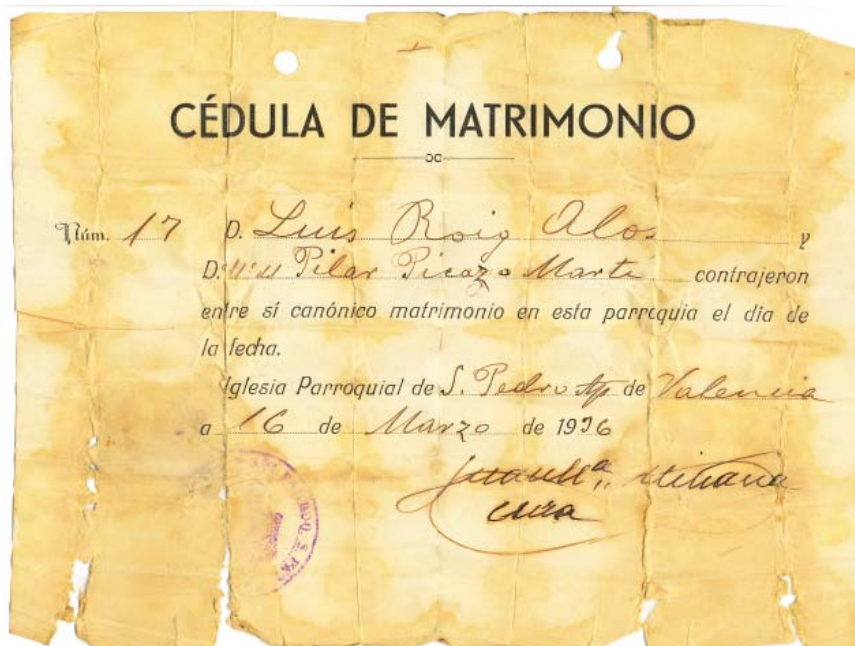 CÉDULA DE MATRIMONIO
Núm. 17 D. Luis Roig Alos y
D.ª Mª Pilar Picazo Marte contrajeron
entre sí canónico matrimonio en esta parroquia el día de
la fecha.
Iglesia Parroquial de S. Pedro Ap de Valencia
a 16 de Marzo de 1936
Juan Mª
cura